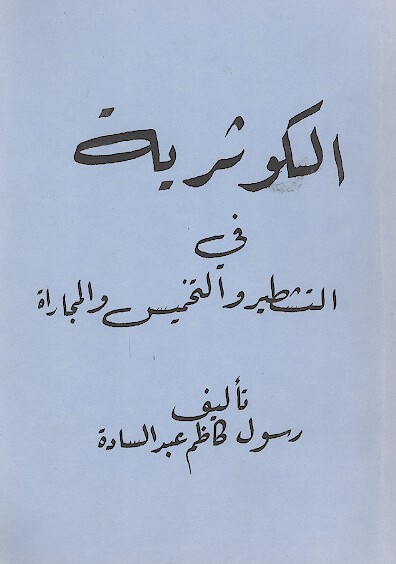 الكوثرية
في
التشطير والتخميس والمجاراة
تأليف
رسول كاظم عبد السادة